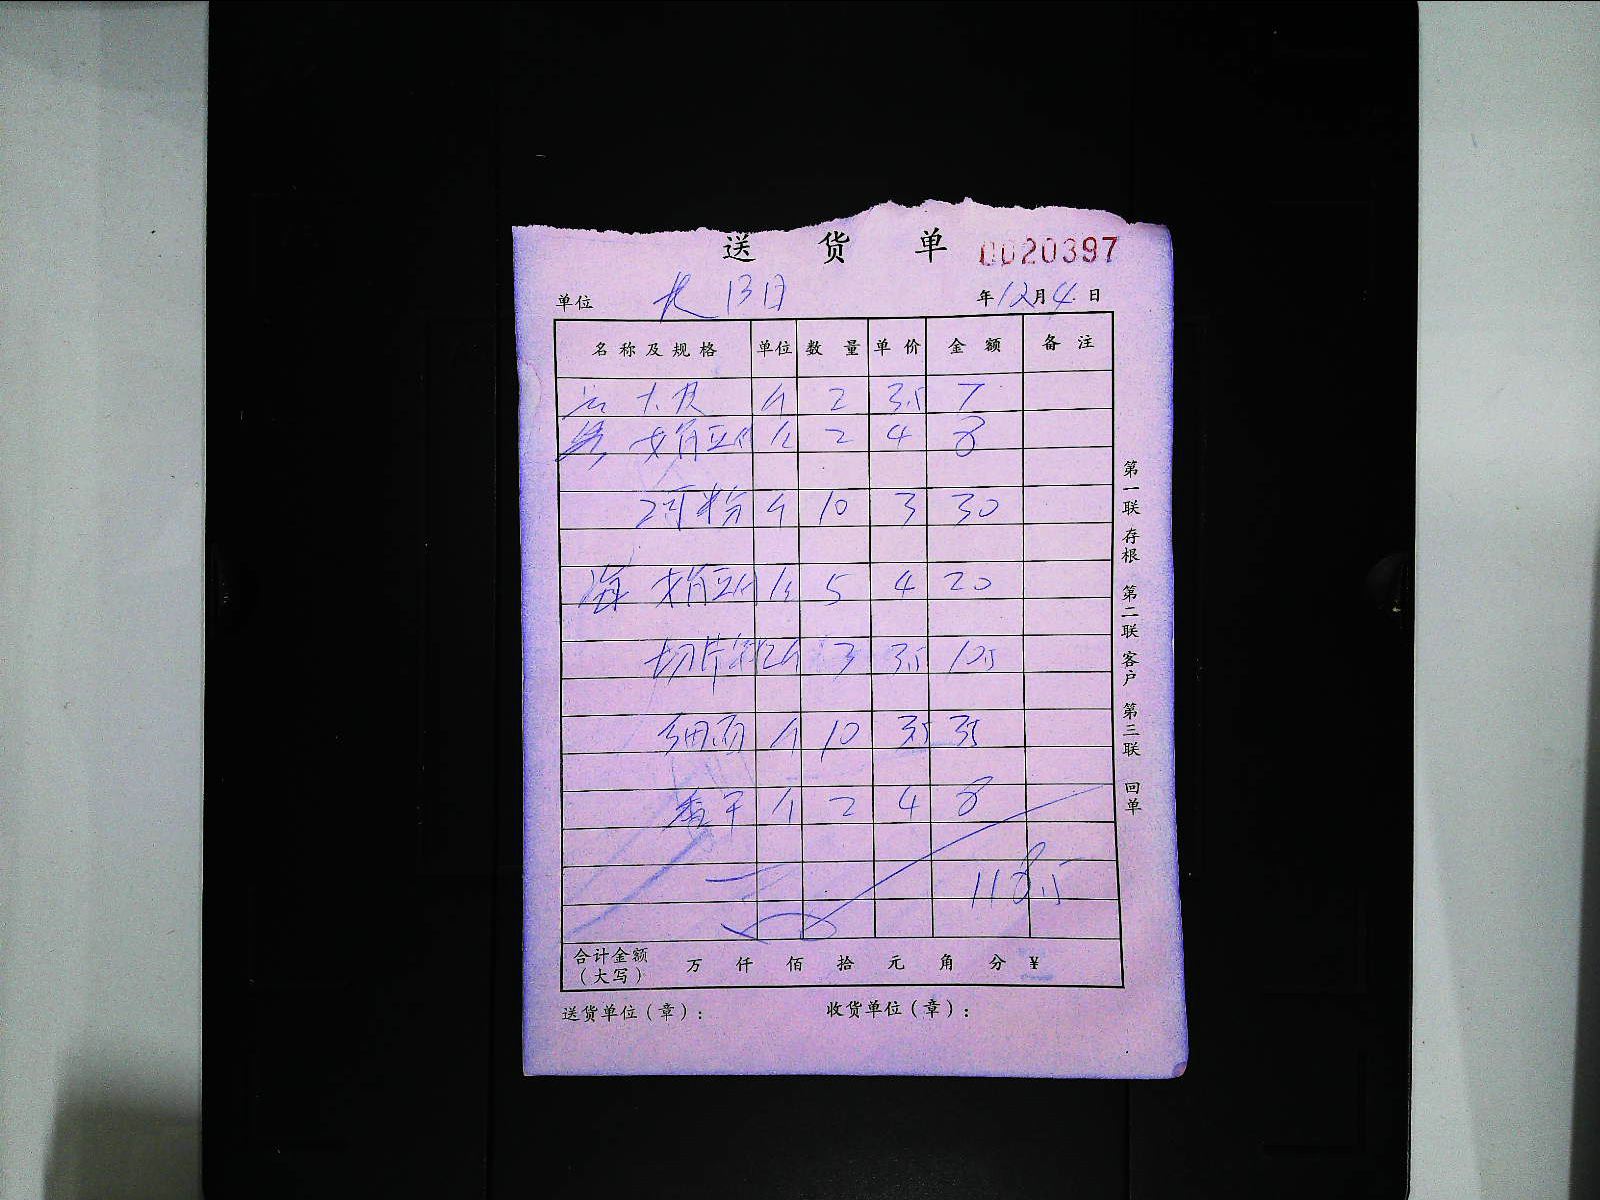 送货单 0020397
单位 年12月4日
名称及规格 单位 数量 单价 金额 备注
大 个 2 3.5 7
2 4 8
河粉 个 10 3 30
海 5 4 20
切片 个 3 3.5 10.5
细面 个 10 3.5 35
香干 个 2 4 8
118.5
合计金额（大写） 万 仟 佰 拾 元 角 分 ¥
送货单位（章）： 收货单位（章）：
第一联 存根 第二联 客户 第三联 回单